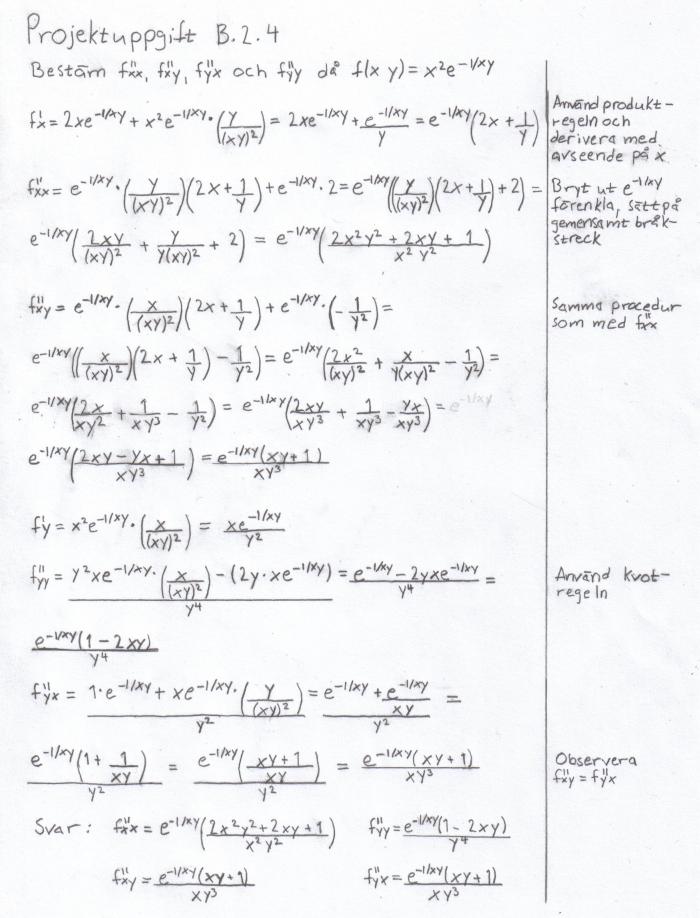 Projektuppgift B.2.4
Bestäm f''xx, f''xy, f''yx och f''yy då f(x y) = x²e^(-1/xy)
f'x = 2xe^(-1/xy) + x²e^(-1/xy) · (y/(xy)²) = 2xe^(-1/xy) + e^(-1/xy)/y = e^(-1/xy)(2x + 1/y)
Använd produkt-
regeln och
derivera med
avseende på x
f''xx = e^(-1/xy) · (y/(xy)²)(2x + 1/y) + e^(-1/xy) · 2 = e^(-1/xy)((y/(xy)²)(2x + 1/y) + 2) =
e^(-1/xy)(2xy/(xy)² + y/(y(xy)²) + 2) = e^(-1/xy)((2x²y² + 2xy + 1)/(x²y²))
Bryt ut e^(-1/xy)
förenkla, sätt på
gemensamt bråk-
streck
f''xy = e^(-1/xy) · (x/(xy)²)(2x + 1/y) + e^(-1/xy) · (-1/y²) =
Samma procedur
som med f''xx
e^(-1/xy)((x/(xy)²)(2x + 1/y) - 1/y²) = e^(-1/xy)(2x²/(xy)² + x/(y(xy)²) - 1/y²) =
e^(-1/xy)(2x/(xy²) + 1/(xy³) - 1/y²) = e^(-1/xy)(2xy/(xy³) + 1/(xy³) - yx/(xy³)) = e^(-1/xy)
e^(-1/xy)((2xy - yx + 1)/(xy³)) = e^(-1/xy)(xy + 1)/(xy³)
f'y = x²e^(-1/xy) · (x/(xy)²) = xe^(-1/xy)/y²
f''yy = (y²xe^(-1/xy) · (x/(xy)²) - (2y · xe^(-1/xy)))/y⁴ = (e^(-1/xy) - 2yxe^(-1/xy))/y⁴ =
Använd kvot-
regeln
e^(-1/xy)(1 - 2xy)/y⁴
f''yx = (1 · e^(-1/xy) + xe^(-1/xy) · (y/(xy)²))/y² = (e^(-1/xy) + e^(-1/xy)/(xy))/y² =
e^(-1/xy)(1 + 1/(xy))/y² = e^(-1/xy)((xy + 1)/(xy))/y² = e^(-1/xy)(xy + 1)/(xy³)
Observera
f''xy = f''yx
Svar: f''xx = e^(-1/xy)((2x²y² + 2xy + 1)/(x²y²)) f''yy = e^(-1/xy)(1 - 2xy)/y⁴
f''xy = e^(-1/xy)(xy + 1)/(xy³) f''yx = e^(-1/xy)(xy + 1)/(xy³)